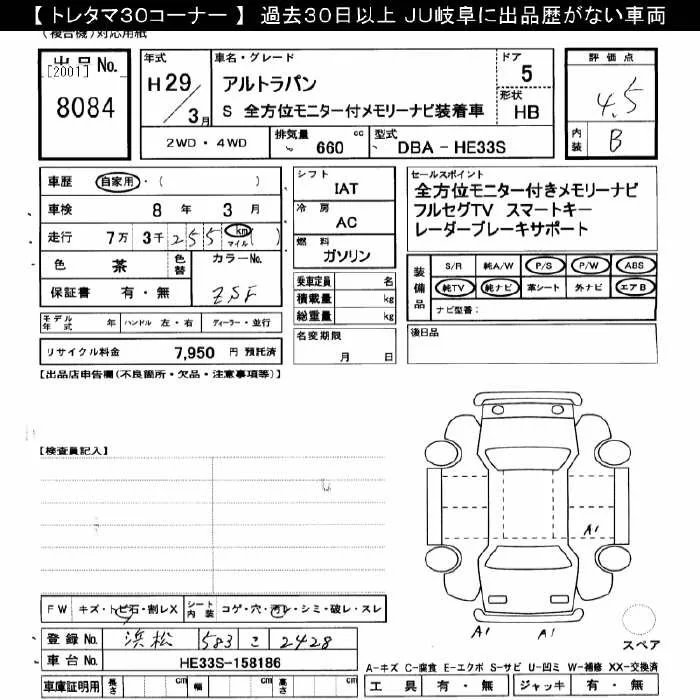 【 トレタマ30コーナー 】 過去30日以上 JU岐阜に出品歴がない車両
(複合機)対応用紙
出品No.
[2001]
8084
年式
H 29 / 3月
車名・グレード
アルトラパン
S 全方位モニター付メモリーナビ装着車
ドア
5
形状
HB
2WD・4WD
排気量
660 cc
型式
DBA - HE33S
評価点
4.5
内装
B
車歴 自家用・( )
車検 8 年 3 月
走行 7万 3千 255 km マイル ( )
色 茶 色替
カラーNo.
ZSF
保証書 有・無
シフト
IAT
冷房
AC
燃料
ガソリン
乗車定員 名
積載量 kg
総重量 kg
セールスポイント
全方位モニター付きメモリーナビ
フルセグTV スマートキー
レーダーブレーキサポート
装備品
S/R 純A/W P/S P/W ABS
純TV 純ナビ 革シート 外ナビ エアB
ナビ型番:
モデル年式 年 ハンドル 左・右 ディーラー・並行
名変期限
月 日
後日品
リサイクル料金 7,950 円 預託済
【出品店申告欄(不良箇所・欠品・注意事項等)】
【検査員記入】
A1
A1
A1
スペア
FW キズ・トビ石・割レX シート内装 コゲ・穴・汚レ・シミ・破レ・スレ
登録No. 浜松 583 こ 2428
車台No. HE33S-158186
車庫証明用 長さ cm 幅 cm 高さ cm
A-キズ C-腐食 E-エクボ S-サビ U-凹ミ W-補修 XX-交換済
工具 有・無 ジャッキ 有・無